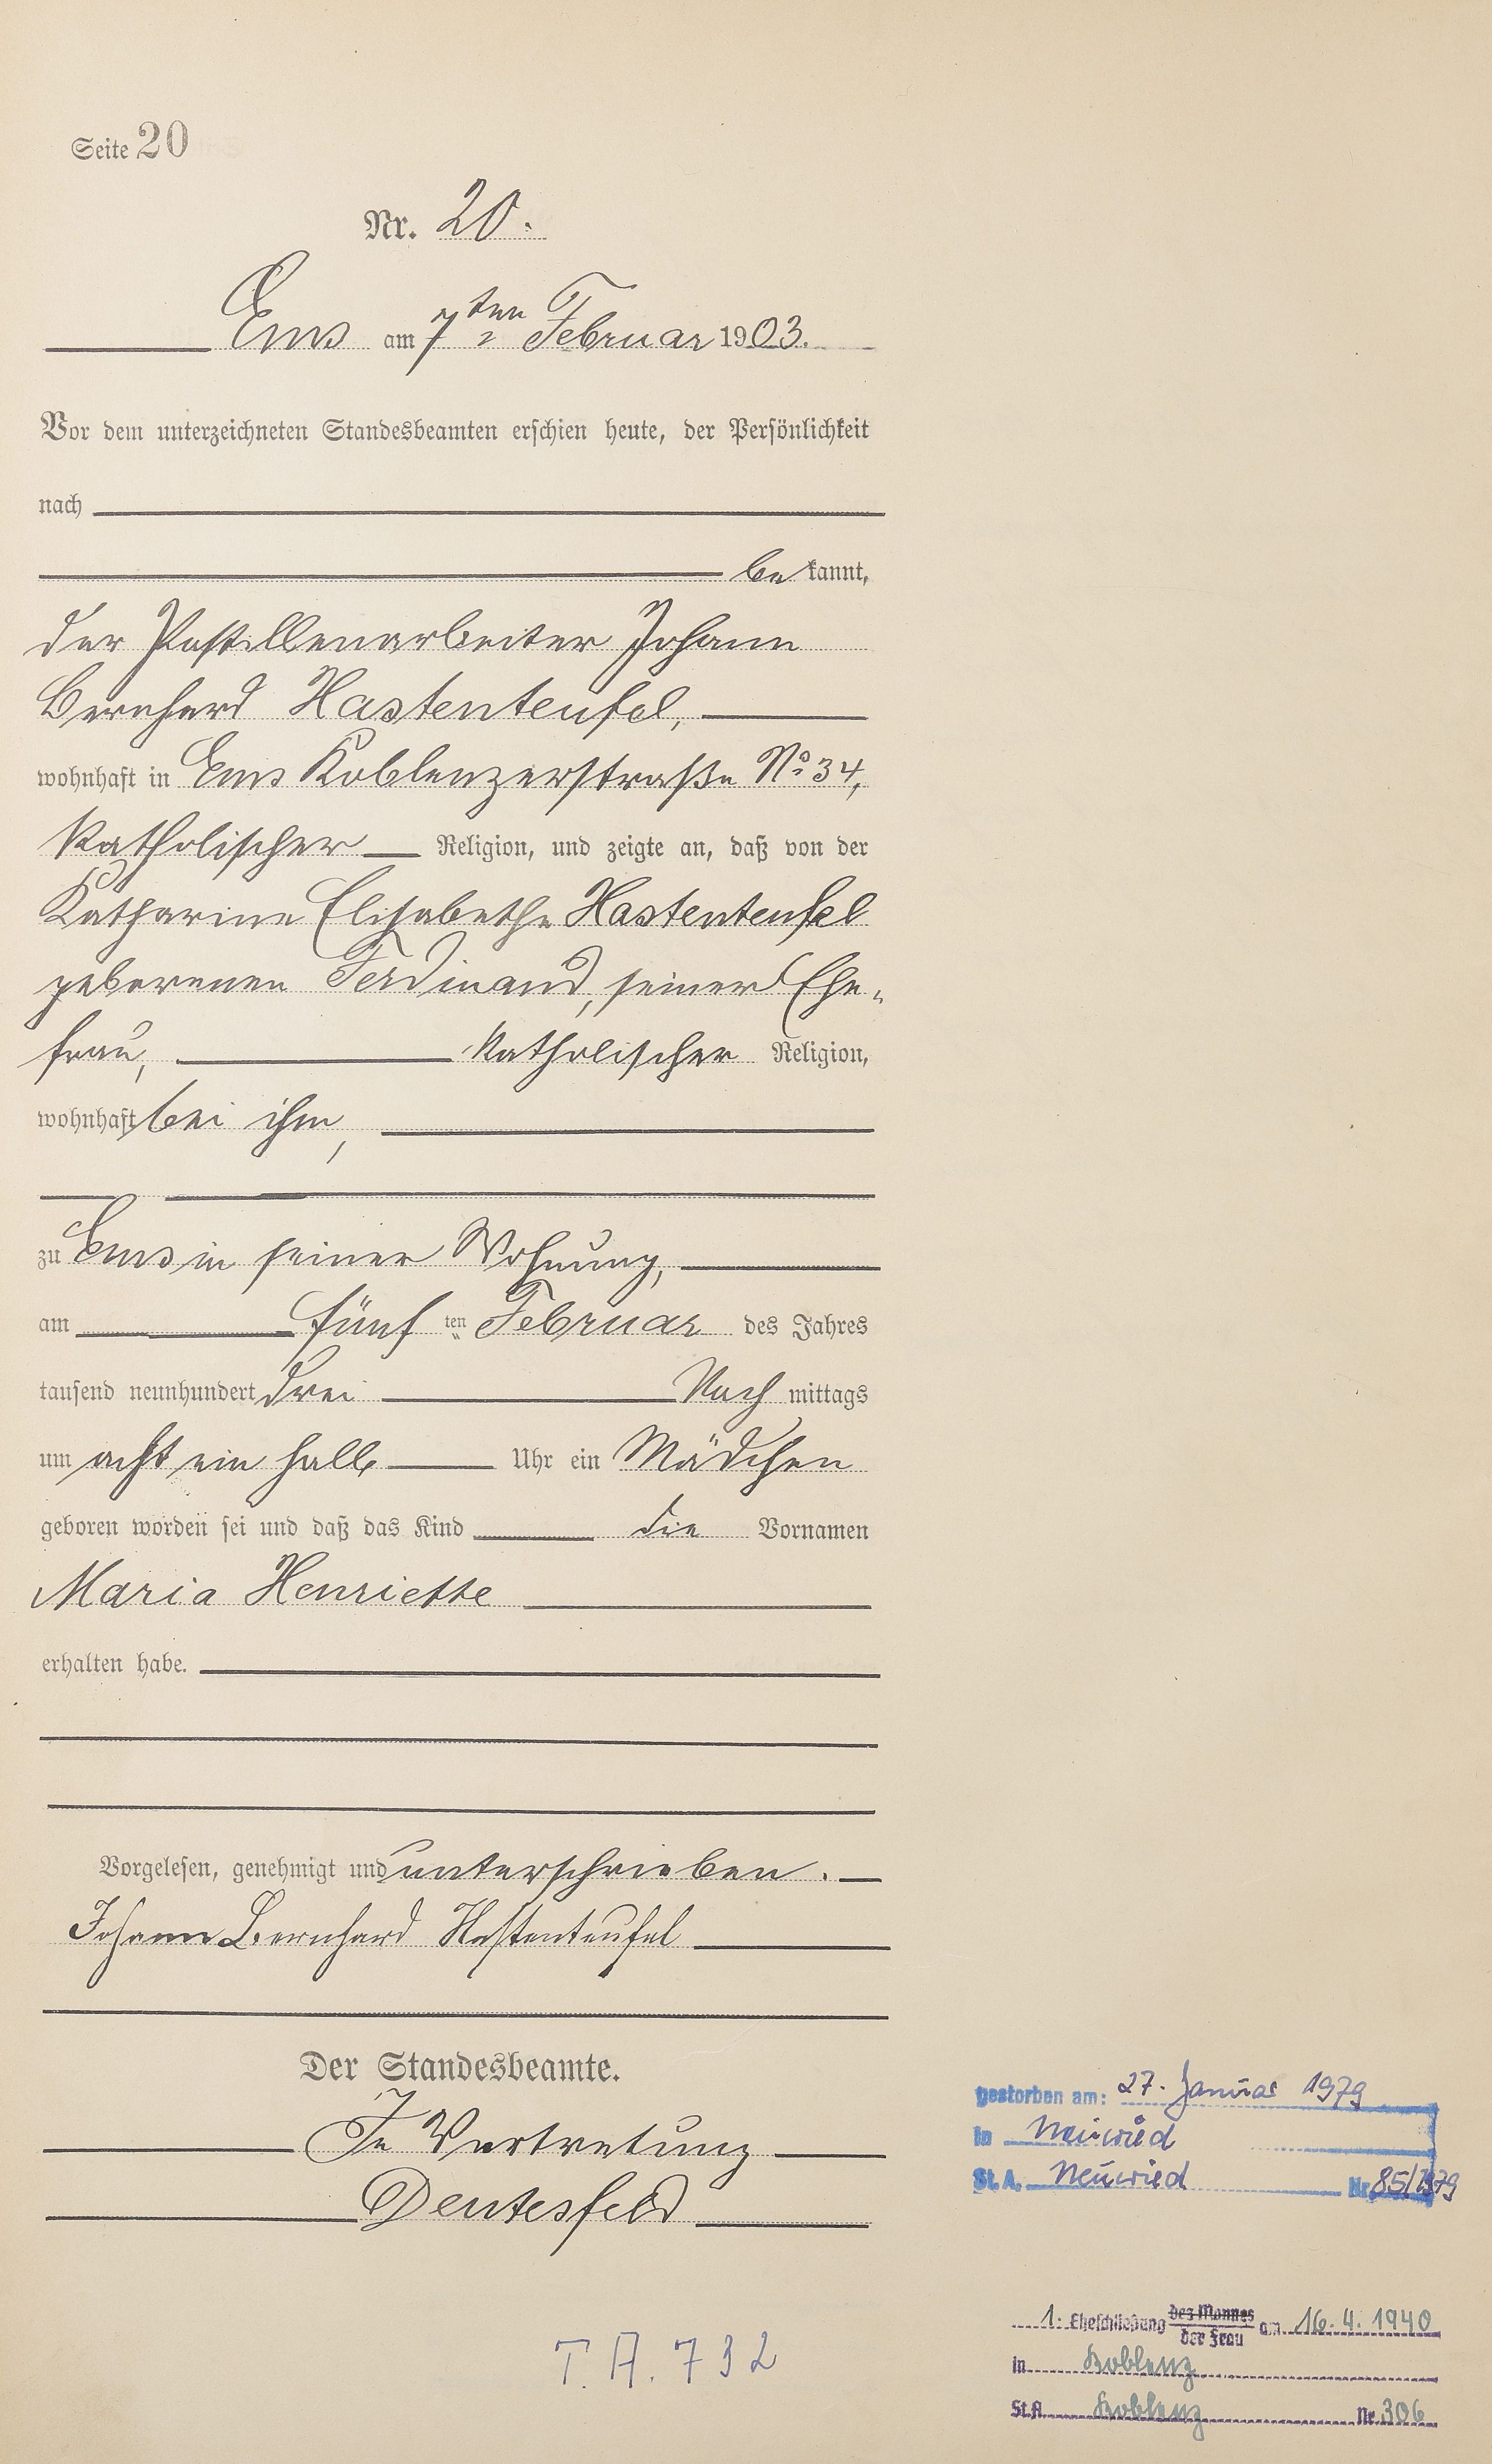 Seite 20
Nr. 20.
Ems am 7ten Februar 1903.
Vor dem unterzeichneten Standesbeamten erschien heute, der Persönlichkeit
nach
be kannt,
der Pastillenarbeiter Johann
Bernhard Hastenteufel,
wohnhaft in Ems Koblenzerstraße No 34,
katholischer Religion, und zeigte an, daß von der
Katharine Elisabethe Hastenteufel
geborenen Ferdinand, seiner Ehe-
frau, katholischer Religion,
wohnhaft bei ihm,
zu Ems in seiner Wohnung,
am fünf ten Februar des Jahres
tausend neunhundert drei Nach mittags
um acht ein halb Uhr ein Mädchen
geboren worden sei und daß das Kind die Vornamen
Maria Henriette
erhalten habe.
Vorgelesen, genehmigt und unterschrieben.
Johann Bernhard Hastenteufel
Der Standesbeamte.
In Vertretung
gestorben am: 27. Januar 1979
in Neuwied
St. A. Neuwied Nr. 85/1979
1. Eheschließung des Mannes
der Frau am 16.4.1940
in Koblenz
St.A. Koblenz Nr. 306
T.A. 732